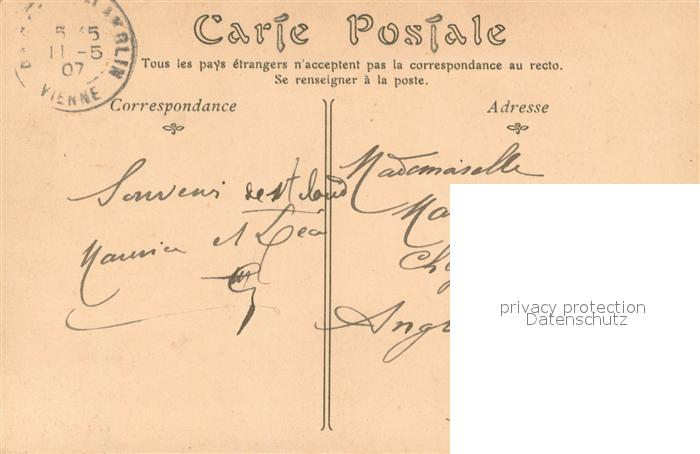 Carte Postale
Tous les pays étrangers n'acceptent pas la correspondance au recto.
Se renseigner à la poste.
Correspondance
Adresse
5 15
11 - 5
07
VIENNE
Souvenir de St Cloud
Maurice et Léa
Mademoiselle
Ma
Ch
Ang
privacy protection
Datenschutz